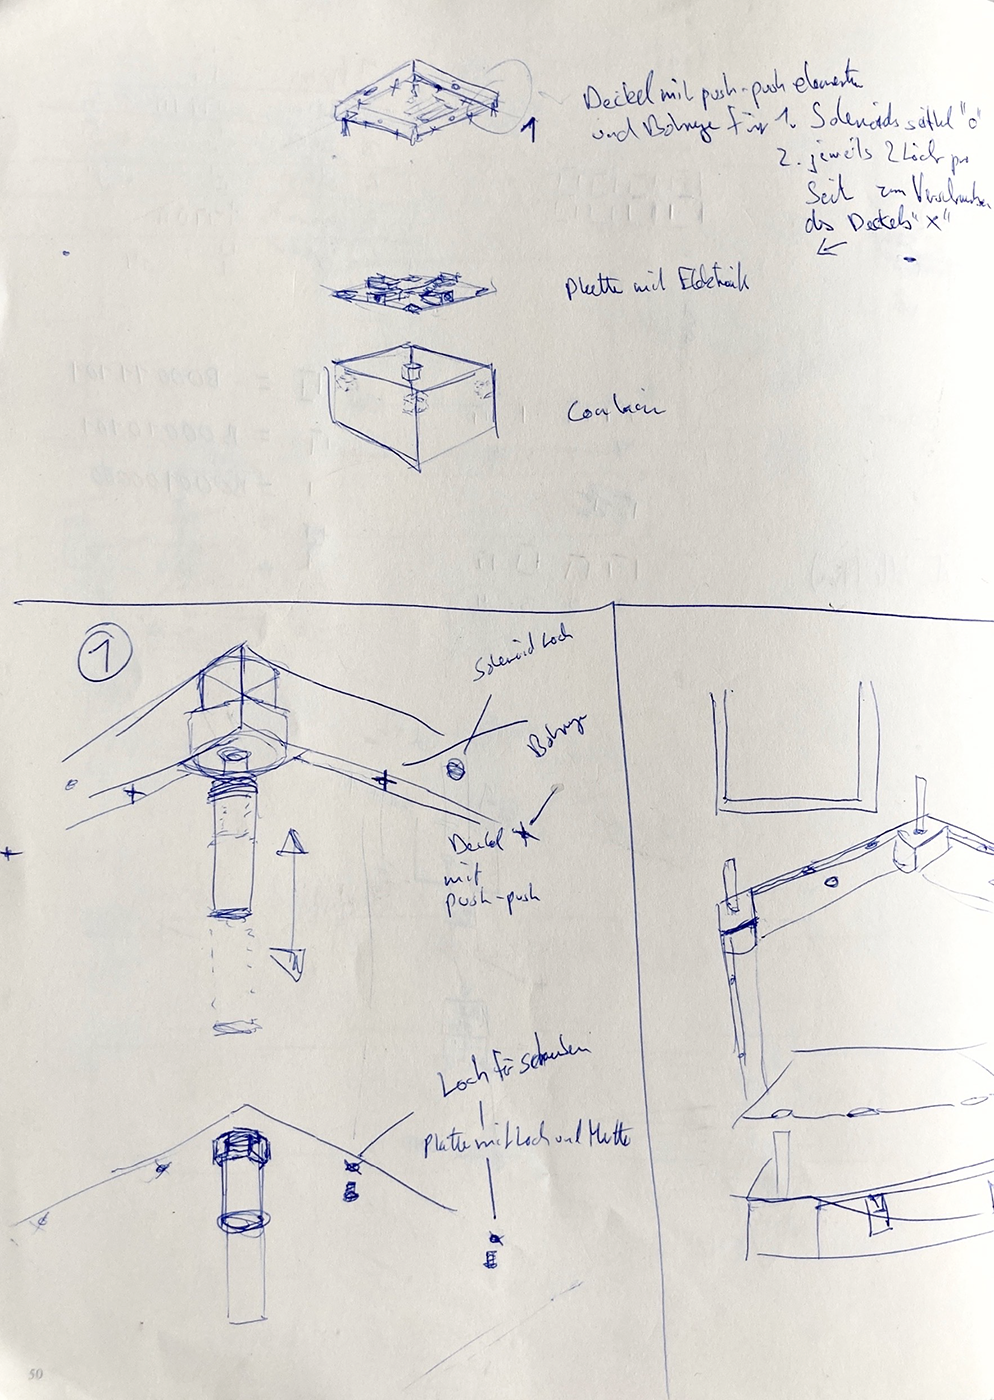 Deckel mit push-push elemente
und Bohrunge für 1. Solenoids seitl "o"
2. jeweils 2 Loch pro
Seite zum Verschrauben
des Deckels "x"
1
Platte mit Elektronik
Container
1
Solenoid Loch
Bohrunge
Deckel
mit
push-push
Loch für Schrauben
Platte mit Loch und Mutter
50